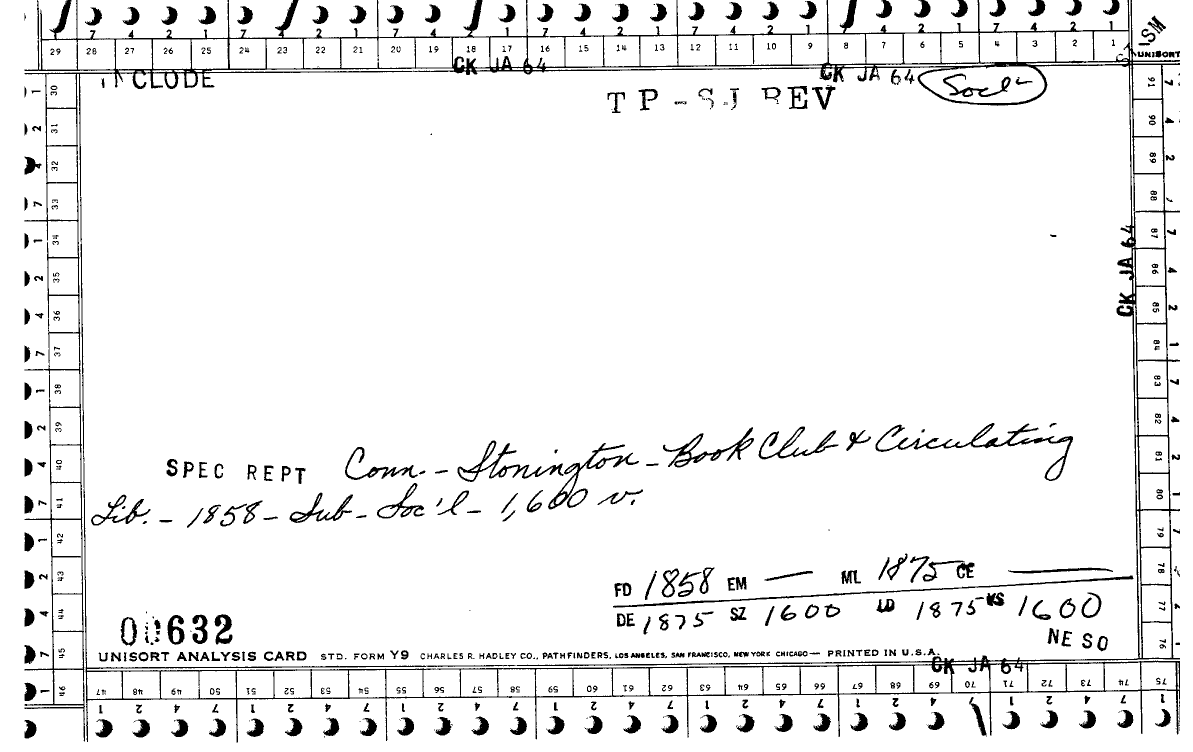 7 4 2 1 7 4 2 1 7 4 2 1 7 4 2 1 7 4 2 1 7 4 2 1 7 4 2 1
29 28 27 26 25 24 23 22 21 20 19 18 17 16 15 14 13 12 11 10 9 8 7 6 5 4 3 2 1 UNISORT
ISM
CK JA 64 CK JA 64
INCLUDE
TP-SJ REV
Soc'l
CK JA 64
30 31 32 33 34 35 36 37 38 39 40 41 42 43 44 45 46
91 90 89 88 87 86 85 84 83 82 81 80 79 78 77 76 75
SPEC REPT Conn. - Stonington - Book Club & Circulating
Lib. - 1858 - Sub - Soc'l - 1,600 v.
FD 1858 EM — ML 1875 CE —
DE 1875 SZ 1600 LD 1875 KS 1600
NE SO
00632
UNISORT ANALYSIS CARD STD. FORM Y9 CHARLES R. HADLEY CO., PATHFINDERS, LOS ANGELES, SAN FRANCISCO, NEW YORK CHICAGO — PRINTED IN U.S.A.
CK JA 64
47 48 49 50 51 52 53 54 55 56 57 58 59 60 61 62 63 64 65 66 67 68 69 70 71 72 73 74
1 2 4 7 1 2 4 7 1 2 4 7 1 2 4 7 1 2 4 7 1 2 4 7 1 2 4 7